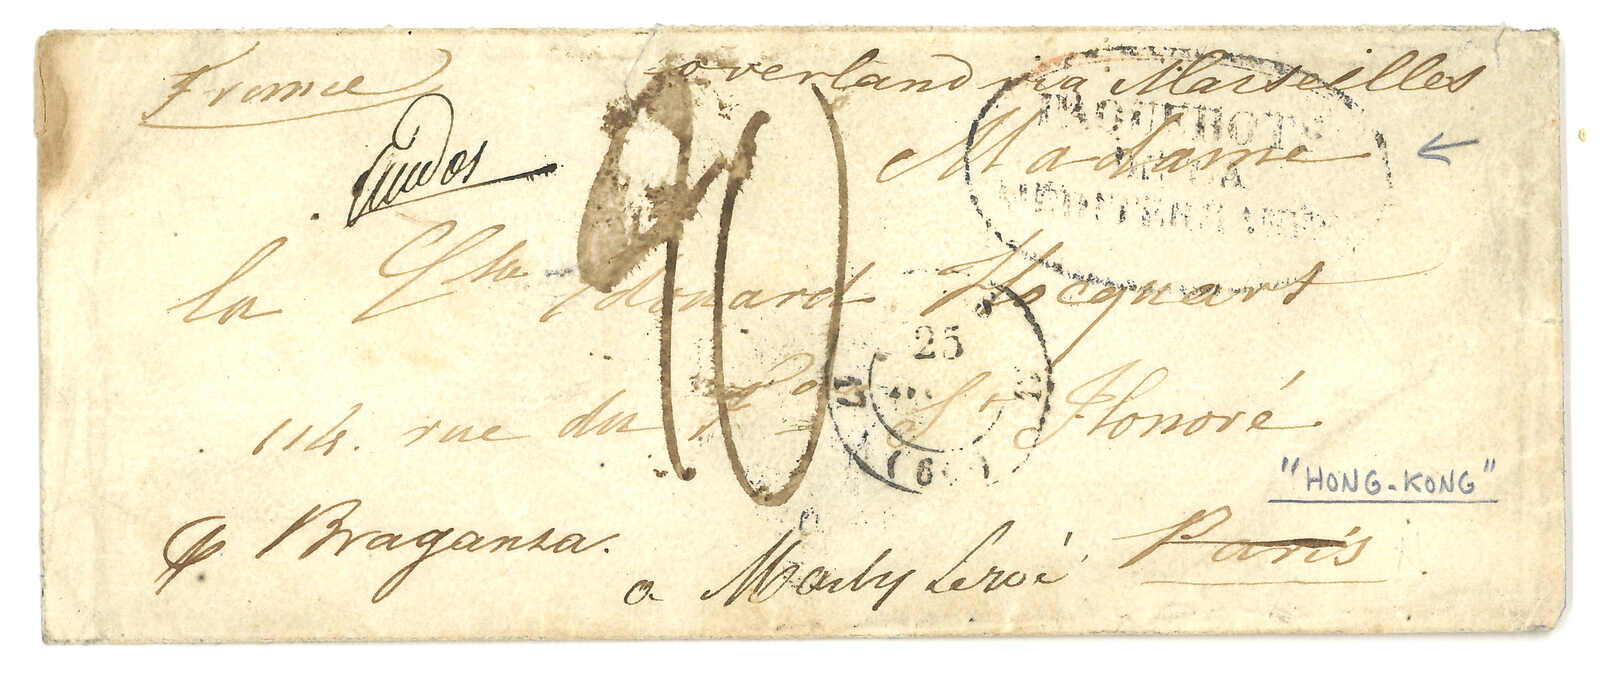 France
overland via Marseilles
PAQUEBOTS
DE LA
MÉDITERRANÉE
Madame
la Ctsse Edouard Hocquart
10
25
(60)
114. rue du Fg St Honoré
"HONG-KONG"
p Braganza.
a Marly Leroi
Paris